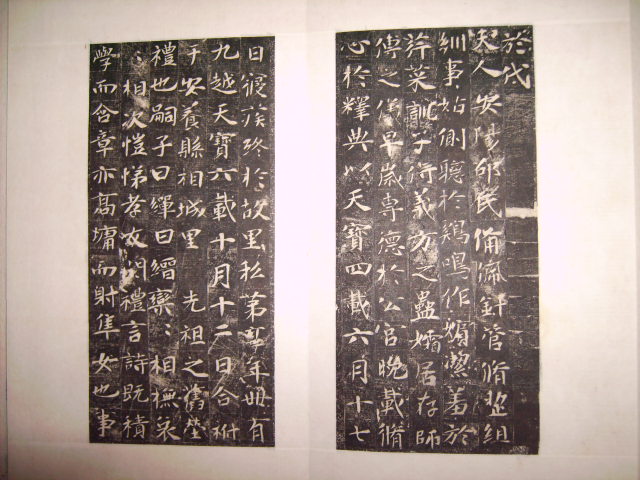 於代
夫人安陽邵氏俻珮針管脩盥組
紃事姑側聽於鷄鳴作嬪潔羞於
荇菜訓子得義方之蠱孀居存師
傅之儀早歲專德於公宮晚載脩
心於釋典以天寶四載六月十七
日寢疾終於故里私第享年卌有
九越天寶六載十月十二日合祔
于安養縣相城里 先祖之舊塋
禮也嗣子曰繟曰縉欒〻相撫哀
〻相次愷悌孝友閱禮言詩既積
學而含章亦高墉而射隼女也事